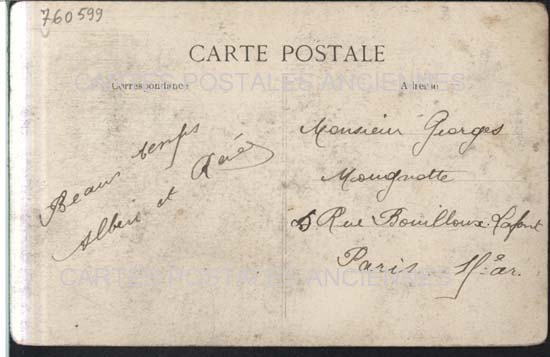 760599
CARTE POSTALE
CARTES POSTALES ANCIENNES
Correspondance
Adresse
Beaux temps
Albert et René
Monsieur Georges
Mougnotte
5 Rue Bouilloux-Lafont
Paris 15e ar.
CARTES POSTALES ANCIENNES